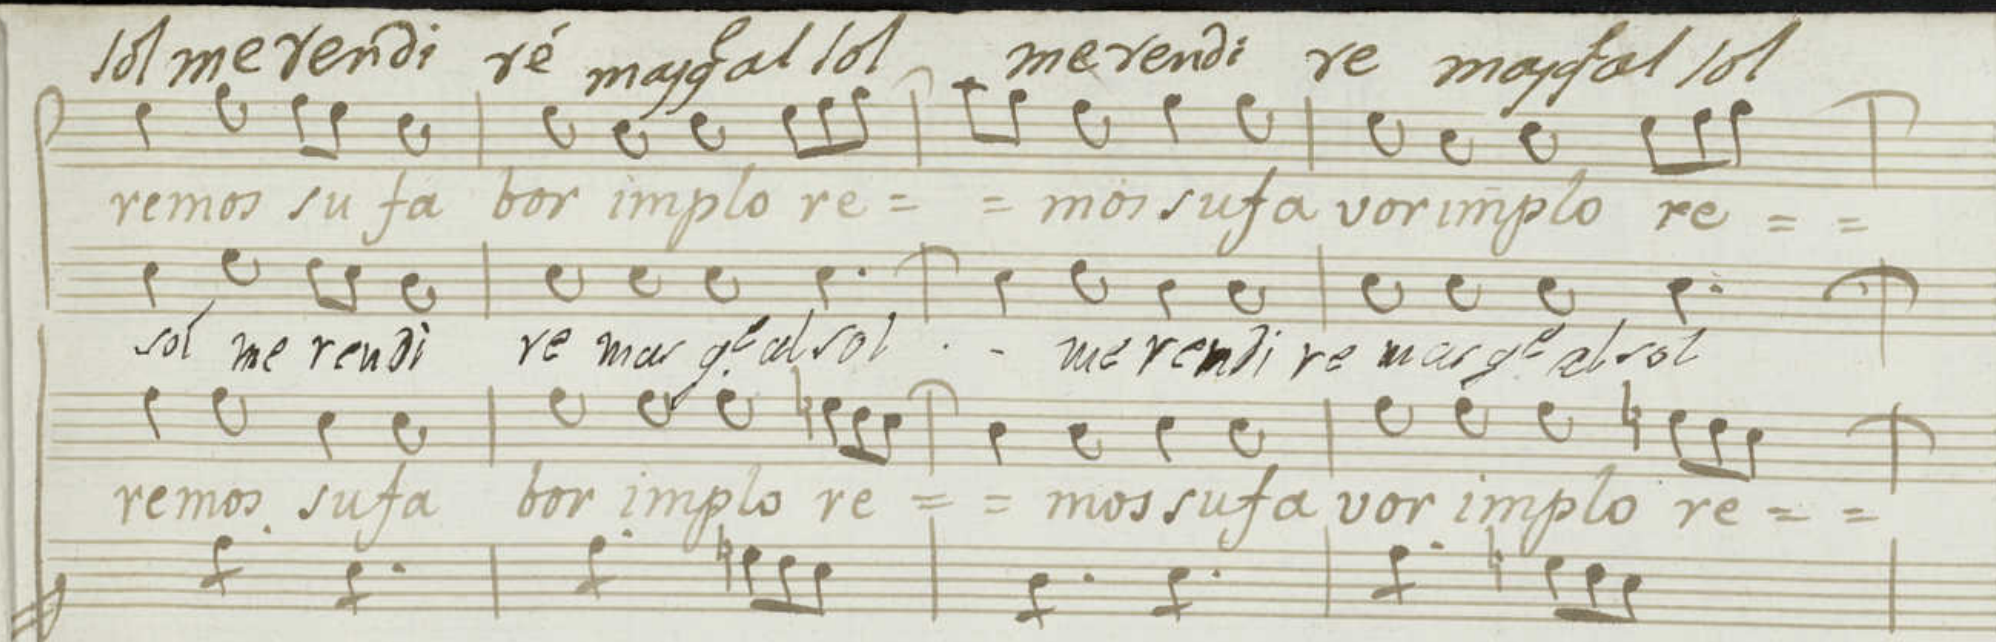 sol me rendi ré mas q.e al sol me rendi re mas q.e al sol
remos su fa bor implo re = = mos su fa vor implo re = =
sol me rendi re mas q.e al sol - - me rendi re mas q.e al sol
remos su fa bor implo re = = mos su fa vor implo re = =